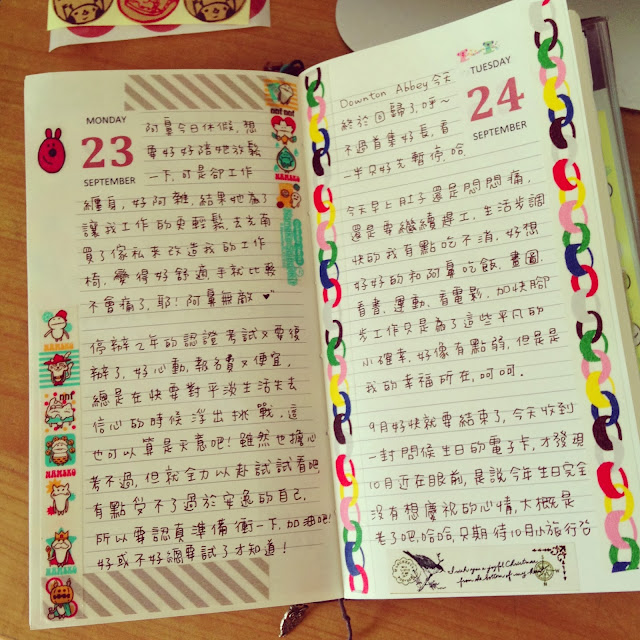 MONDAY
23
SEPTEMBER
阿鼻今日休假,想
要好好陪她放鬆
一下,可是卻工作
纏身,好阿雜,結果她為了
讓我工作的更輕鬆,去光南
買了傢私來改造我的工作
椅,變得好舒適手就比較
不會痛了,耶!阿鼻無敵
停辦2年的認證考試又要復
辦了,好心動,報名費又便宜,
總是在快要對平淡生活失去
信心的時候浮出挑戰,這
也可以算是天意吧!雖然也擔心
考不過,但就全力以赴試試看吧,
有點受不了過於安逸的自己,
所以要認真準備衝一下,加油吧!
好或不好總要試了才知道!
NAMAKO
NAMAKO
NAMAKO
TUESDAY
24
SEPTEMBER
Downton Abbey今天
終於回歸了,呼~
不過首集好長,看
一半只好先暫停,哈
今天早上肚子還是悶悶痛,
還是要繼續趕工,生活步調
快的我有點吃不消,好想
好好的和阿鼻吃飯、畫圖、
看書、運動、看電影,加快腳
步工作只是為了這些平凡的
小確幸,好像有點弱,但是是
我的幸福所在,呵呵.
9月好快就要結束了,今天收到
一封問候生日的電子卡,才發現
10月近在眼前,是說今年生日完全
沒有想慶祝的心情,大概是
老了吧,哈哈,只期待10月小旅行
I wish you a joyful Christmas
from the bottom of my heart